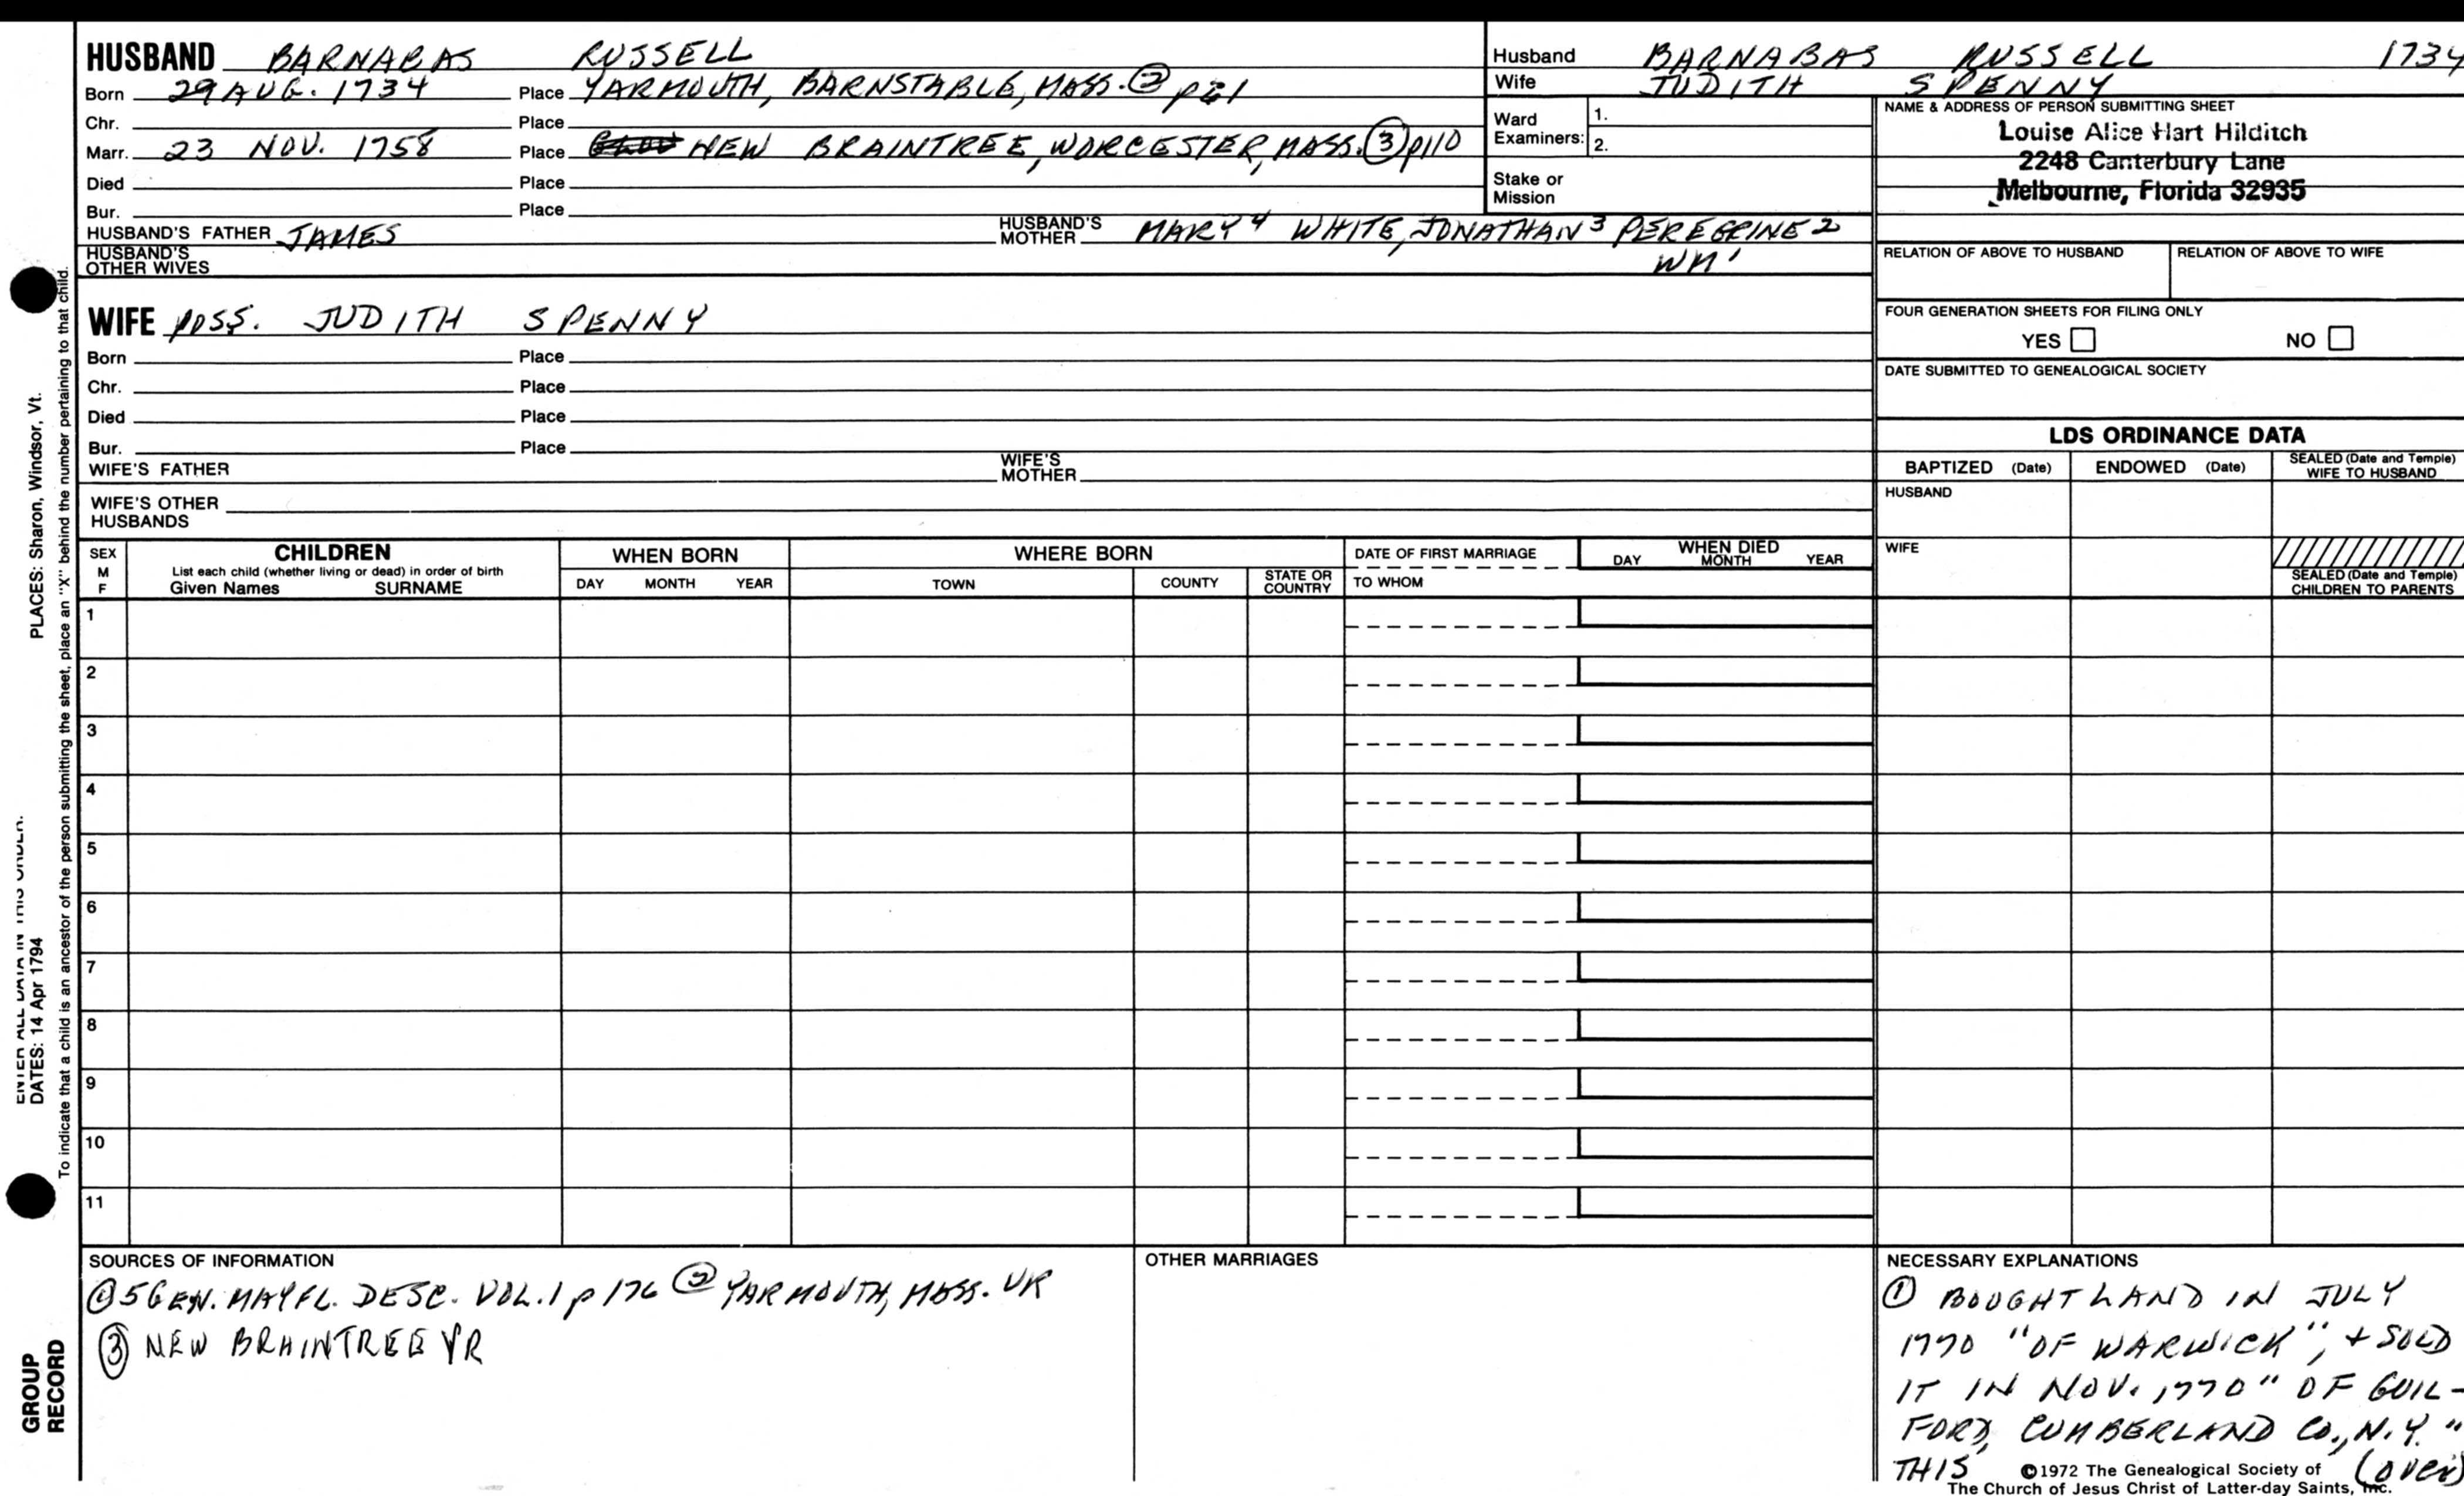 HUSBAND BARNABAS RUSSELL
Born 29 AUG. 1734 Place YARMOUTH, BARNSTABLE, MASS. ②
Chr. Place
Marr. 23 NOV. 1758 Place NEW BRAINTREE, WORCESTER, MASS. ③ p110
Died Place
Bur. Place
HUSBAND'S FATHER JAMES HUSBAND'S MOTHER MARY 4 WHITE, JONATHAN 3 PEREGRINE 2
WM 1
HUSBAND'S OTHER WIVES
WIFE POSS. JUDITH SPENNY
Born Place
Chr. Place
Died Place
Bur. Place
WIFE'S FATHER WIFE'S MOTHER
WIFE'S OTHER HUSBANDS
Husband BARNABAS RUSSELL 1734
Wife JUDITH SPENNY
Ward Examiners: 1.
2.
Stake or Mission
NAME & ADDRESS OF PERSON SUBMITTING SHEET
Louise Alice Hart Hilditch
2248 Canterbury Lane
Melbourne, Florida 32935
RELATION OF ABOVE TO HUSBAND RELATION OF ABOVE TO WIFE
FOUR GENERATION SHEETS FOR FILING ONLY
YES NO
DATE SUBMITTED TO GENEALOGICAL SOCIETY
LDS ORDINANCE DATA
BAPTIZED (Date) ENDOWED (Date) SEALED (Date and Temple) WIFE TO HUSBAND
HUSBAND
WIFE
SEALED (Date and Temple) CHILDREN TO PARENTS
SEX M F
CHILDREN
List each child (whether living or dead) in order of birth
Given Names SURNAME
WHEN BORN
DAY MONTH YEAR
WHERE BORN
TOWN COUNTY STATE OR COUNTRY
DATE OF FIRST MARRIAGE
TO WHOM
WHEN DIED
DAY MONTH YEAR
1
2
3
4
5
6
7
8
9
10
11
SOURCES OF INFORMATION
① 5 GEN. MAYFL. DESC. VOL. 1 p 176 ② YARMOUTH, MASS. VR
③ NEW BRAINTREE VR
OTHER MARRIAGES
NECESSARY EXPLANATIONS
① BOUGHT LAND IN JULY
1770 "OF WARWICK", + SOLD
IT IN NOV. 1770 "OF GUIL-
FORD, CUMBERLAND CO., N.Y."
THIS (over)
©1972 The Genealogical Society of
The Church of Jesus Christ of Latter-day Saints, Inc.
PLACES: Sharon, Windsor, Vt.
ENTER ALL DATA IN THIS ORDER:
DATES: 14 Apr 1794
To indicate that a child is an ancestor of the person submitting the sheet, place an "X" behind the number pertaining to that child.
GROUP
RECORD